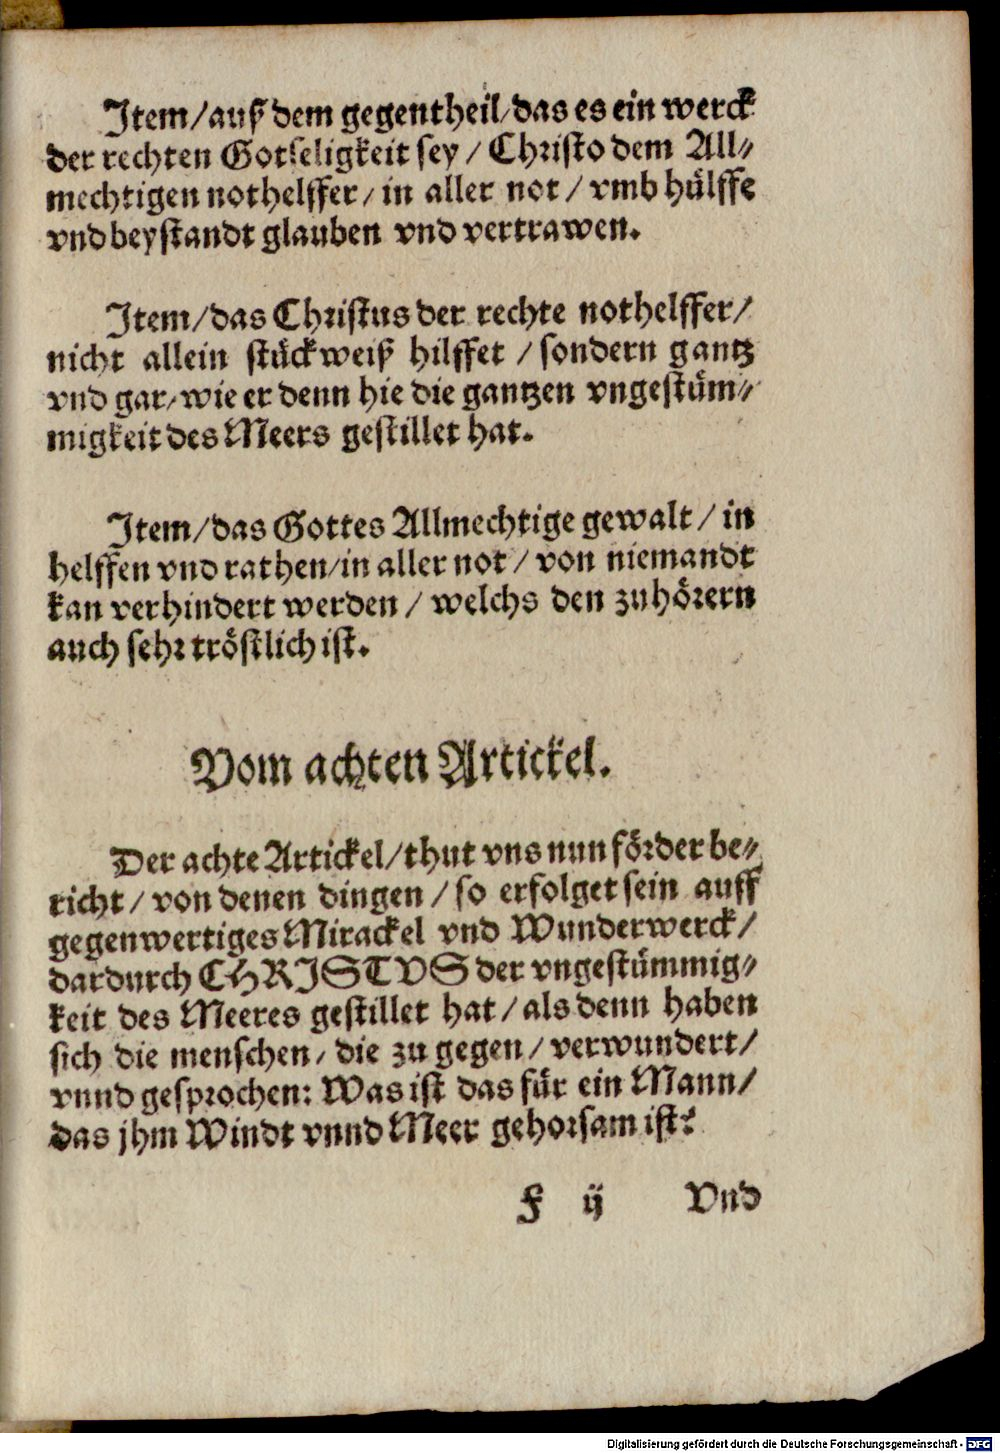 Item/auß dem gegentheil/das es ein werck
der rechten Gotseligkeit sey / Christo dem All⸗
mechtigen nothelffer/ in aller not / vmb hülffe
vnd beystandt glauben vnd vertrawen.
Item/das Christus der rechte nothelffer/
nicht allein stückweiß hilffet / sondern gantz
vnd gar/wie er denn hie die gantzen vngestüm⸗
migkeit des Meers gestillet hat.
Item/das Gottes Allmechtige gewalt / in
helffen vnd rathen/in aller not / von niemandt
kan verhindert werden / welchs den zuhörern
auch sehr tröstlich ist.
Vom achten Artickel.
Der achte Artickel/thut vns nun förder be⸗
richt / von denen dingen / so erfolget sein auff
gegenwertiges Mirackel vnd Wunderwerck/
dardurch CHRISTVS der vngestümmig⸗
keit des Meeres gestillet hat / als denn haben
sich die menschen/ die zu gegen / verwundert/
vnnd gesprochen: Was ist das für ein Mann/
das jhm Windt vnnd Meer gehorsam ist?
F ij Vnd
Digitalisierung gefördert durch die Deutsche Forschungsgemeinschaft - DFG